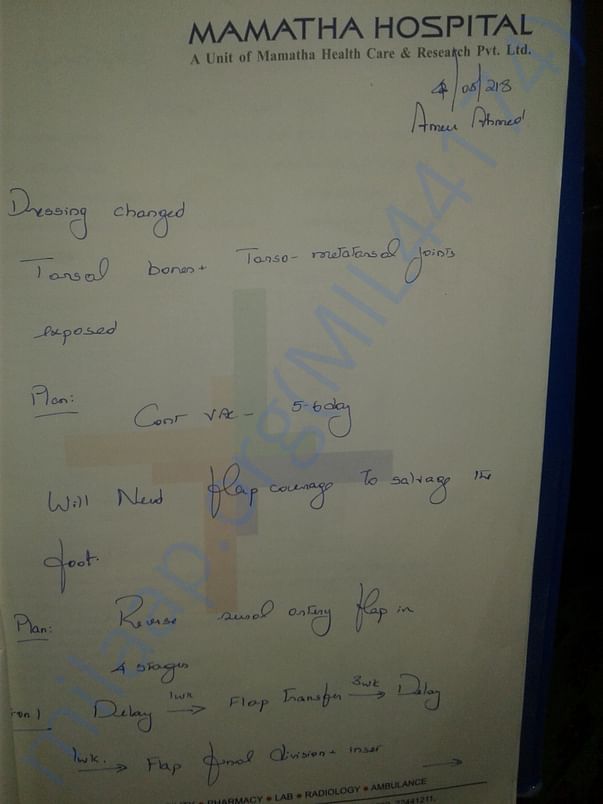 MAMATHA HOSPITAL
A Unit of Mamatha Health Care & Research Pvt. Ltd.
4/08/218
Ahmed
Dressing changed
Tarsal bones + Tarso-metatarsal joints
exposed
Plan:
Cont VAC - 5-6 day
Will Need flap coverage to salvage the
foot.
Plan: Reverse sural artery flap in
4 stages
1wk 3wk
Delay → Flap Transfer → Delay
1wk. → Flap final division + inset →
PHARMACY • LAB • RADIOLOGY • AMBULANCE
27441211,
milaap.org(MIL44174)